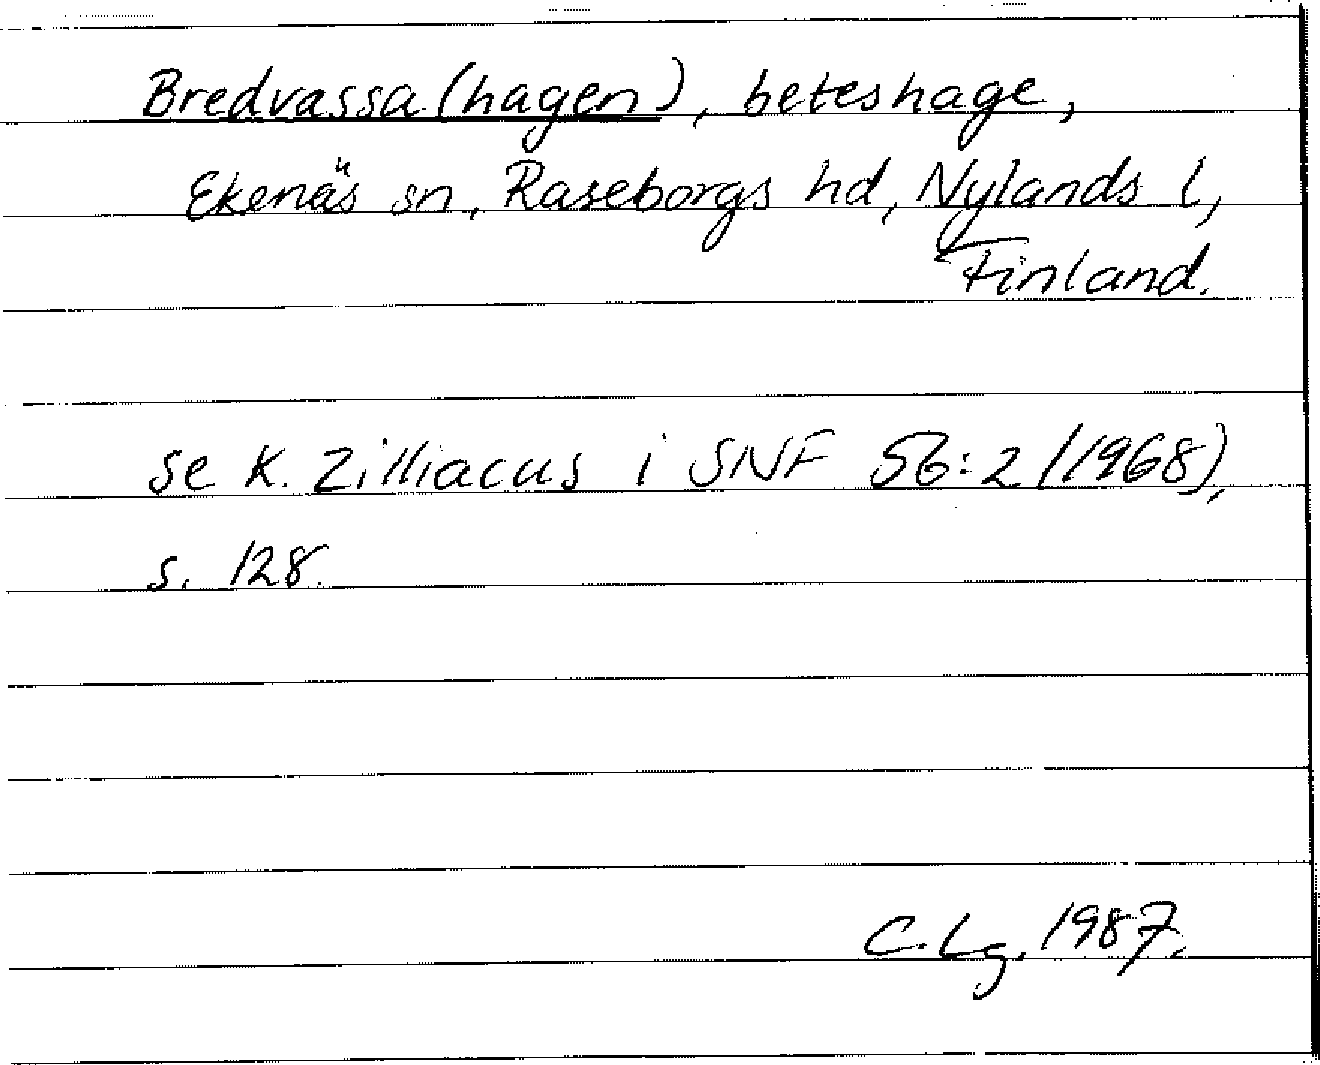 Bredvassa (hagen), beteshage,
Ekenäs sn, Raseborgs hd, Nylands l,
Finland.
se K. Zilliacus i SNF 56:2 (1968),
s. 128.
C. Lg. 1987.